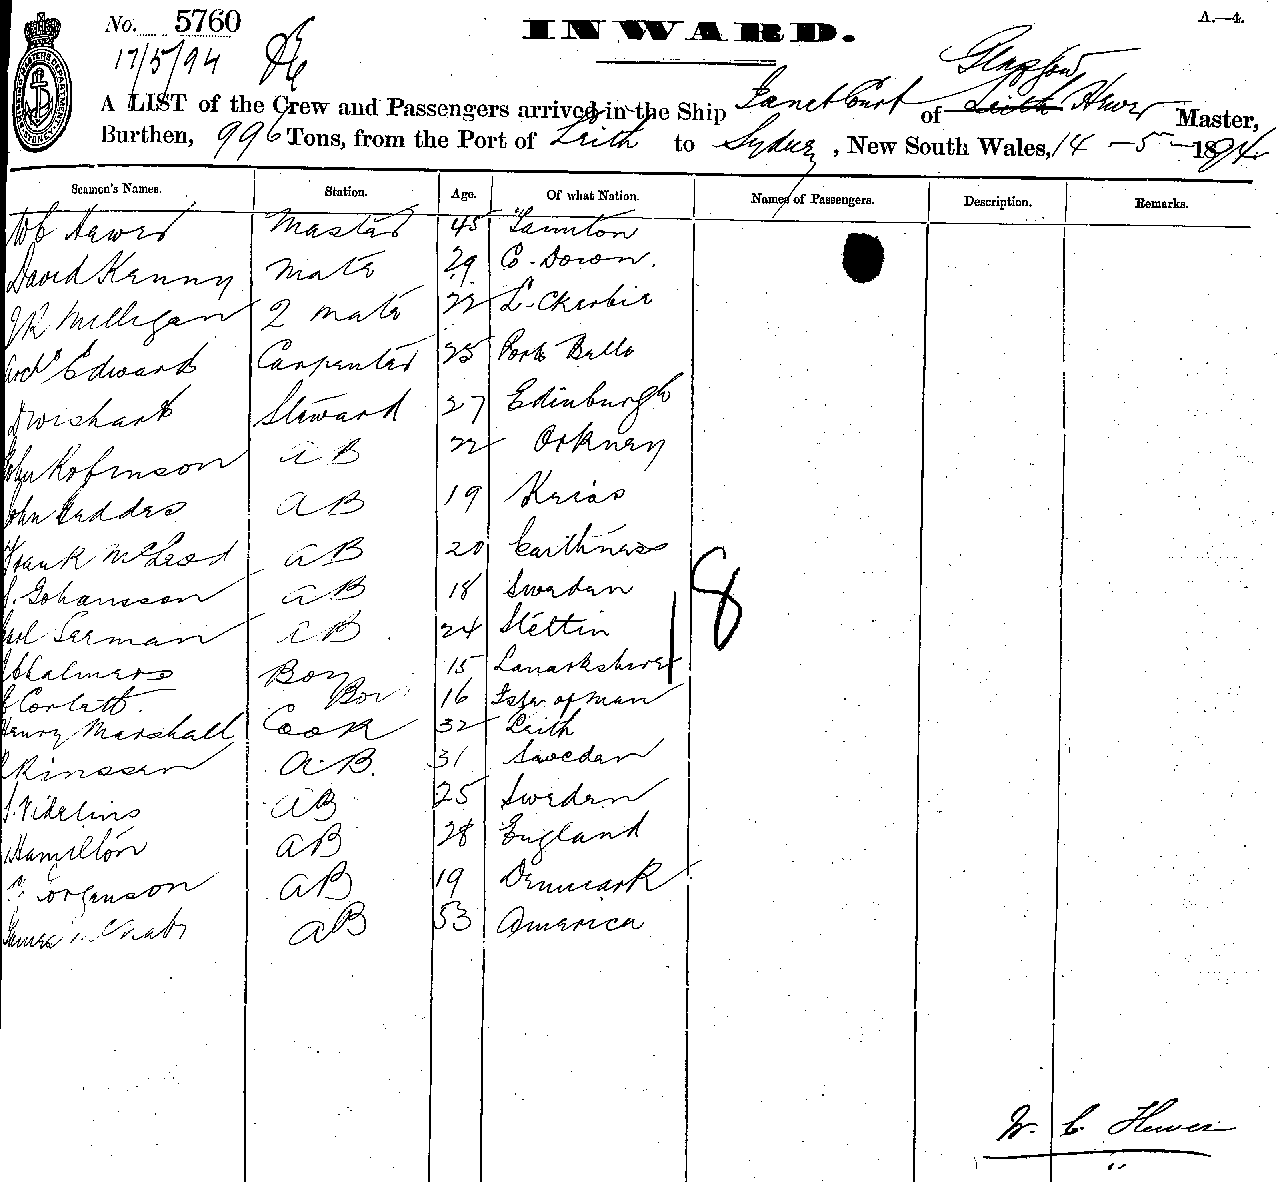 No. 5760
INWARD.
A.—4.
17/5/94
Glasgow
A LIST of the Crew and Passengers arrived in the Ship Janet Court of Leith Hewer Master,
Burthen, 996 Tons, from the Port of Leith to Sydney, New South Wales, 14 - 5 - 1894
Seamen's Names. Station. Age. Of what Nation. Names of Passengers. Description. Remarks.
Wc Hewer Master 45 Taunton
David Kenny Mate 29 Co. Down.
JR Milligan 2 mate 22 Lockerbie
Archd Edward Carpenter 25 Porto Bello
D Wishart Steward 27 Edinburgh
John Robinson AB 22 Orkney
John Geddes AB 19 Keiss
Frank McLeod AB 20 Caithness
Johansson AB 18 Sweden
18
Carl Serman AB 24 Stettin
Chalmers Boy 15 Lanarkshire
Corlett. Boy 16 Isle of Man
Henry Marshall Cook 32 Leith
A.B. 31 Sweden
AB 25 Sweden
Hamilton AB 28 England
Jorgenson AB 19 Denmark
James McNab AB 53 America
W. C. Hewer